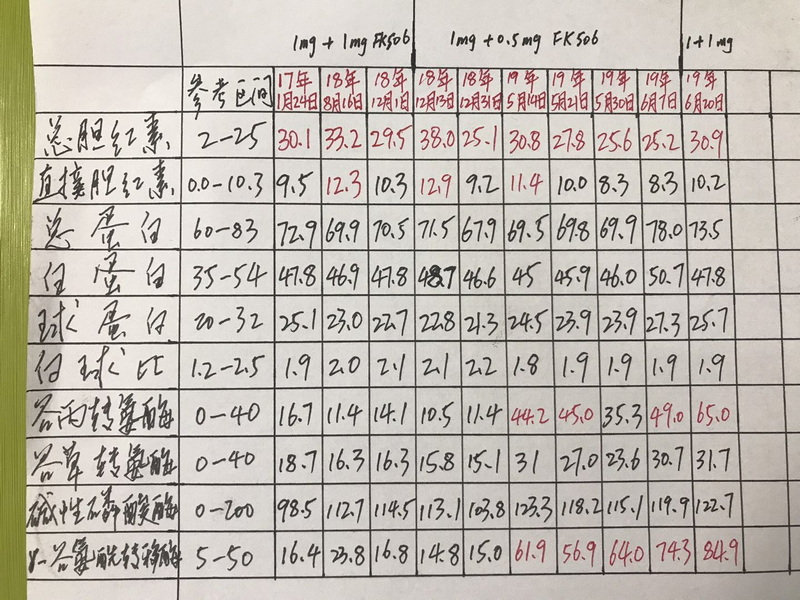 1mg + 1mg FK506 1mg + 0.5mg FK506 1+1mg
参考区间 17年1月24日 18年8月16日 18年12月1日 18年12月13日 18年12月31日 19年5月14日 19年5月21日 19年5月30日 19年6月7日 19年6月20日
总胆红素 2-25 30.1 33.2 29.5 38.0 25.1 30.8 27.8 25.6 25.2 30.9
直接胆红素 0.0-10.3 9.5 12.3 10.3 12.9 9.2 11.4 10.0 8.3 8.3 10.2
总蛋白 60-83 72.9 69.9 70.5 71.5 67.9 69.5 69.8 69.9 78.0 73.5
白蛋白 35-54 47.8 46.9 47.8 48.7 46.6 45 45.9 46.0 50.7 47.8
球蛋白 20-32 25.1 23.0 22.7 22.8 21.3 24.5 23.9 23.9 27.3 25.7
白球比 1.2-2.5 1.9 2.0 2.1 2.1 2.2 1.8 1.9 1.9 1.9 1.9
谷丙转氨酶 0-40 16.7 11.4 14.1 10.5 11.4 44.2 45.0 35.3 49.0 65.0
谷草转氨酶 0-40 18.7 16.3 16.3 15.8 15.1 31 27.0 23.6 30.7 31.7
碱性磷酸酶 0-200 98.5 112.7 114.5 113.1 103.8 123.3 118.2 115.1 119.9 122.7
γ-谷氨酰转移酶 5-50 16.4 23.8 16.8 14.8 15.0 61.9 56.9 64.0 74.3 84.9